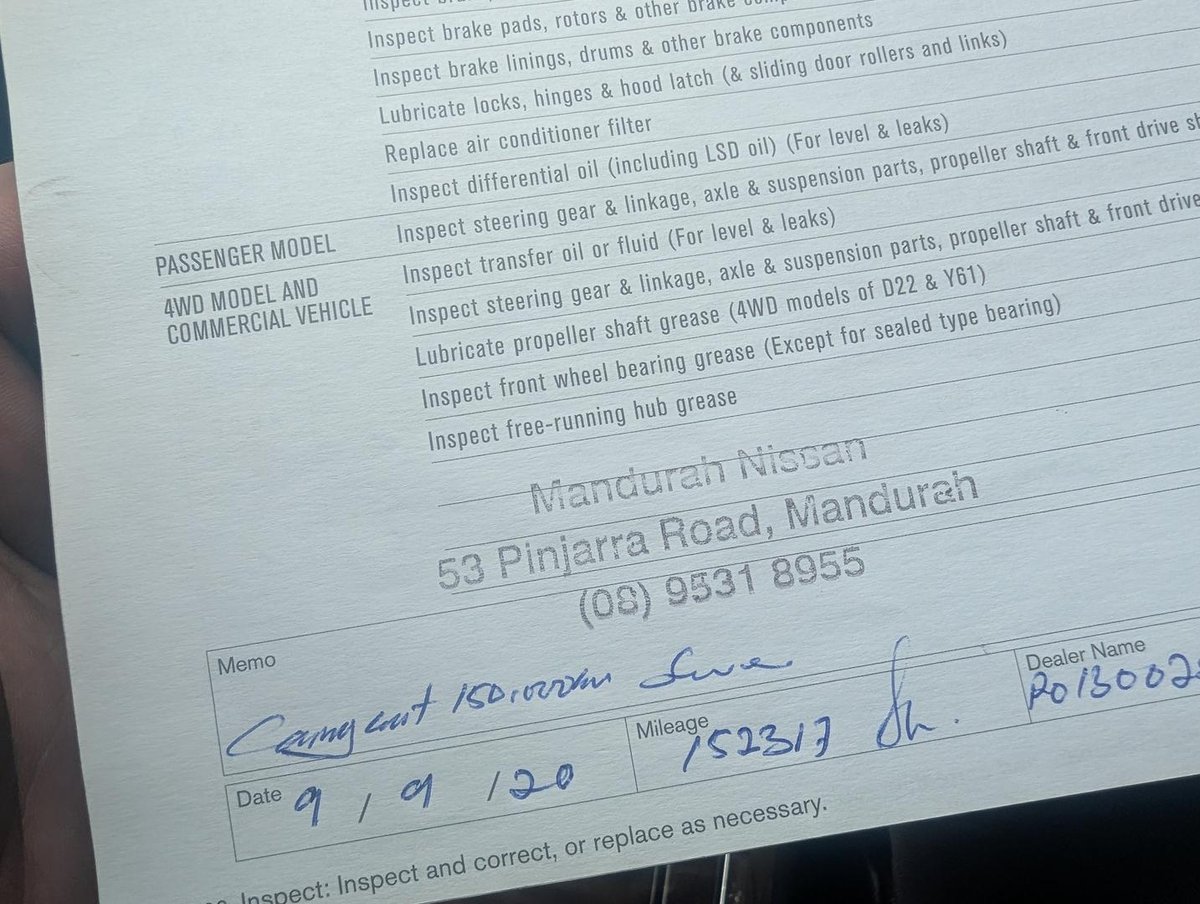 Inspect brake pads, rotors & other brake
Inspect brake linings, drums & other brake components
Lubricate locks, hinges & hood latch (& sliding door rollers and links)
Replace air conditioner filter
Inspect differential oil (including LSD oil) (For level & leaks)
PASSENGER MODEL
Inspect steering gear & linkage, axle & suspension parts, propeller shaft & front drive
4WD MODEL AND
COMMERCIAL VEHICLE
Inspect transfer oil or fluid (For level & leaks)
Inspect steering gear & linkage, axle & suspension parts, propeller shaft & front drive
Lubricate propeller shaft grease (4WD models of D22 & Y61)
Inspect front wheel bearing grease (Except for sealed type bearing)
Inspect free-running hub grease
Mandurah Nissan
53 Pinjarra Road, Mandurah
(08) 9531 8955
Memo
out 150,000km
Date 9 / 9 / 20
Mileage
152317
Dealer Name
Inspect: Inspect and correct, or replace as necessary.